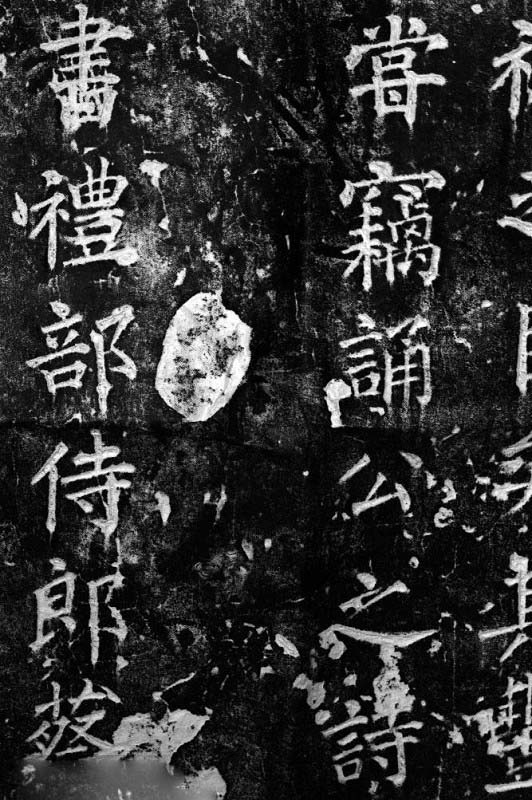 嘗竊誦公之詩
書禮部侍郎蔡